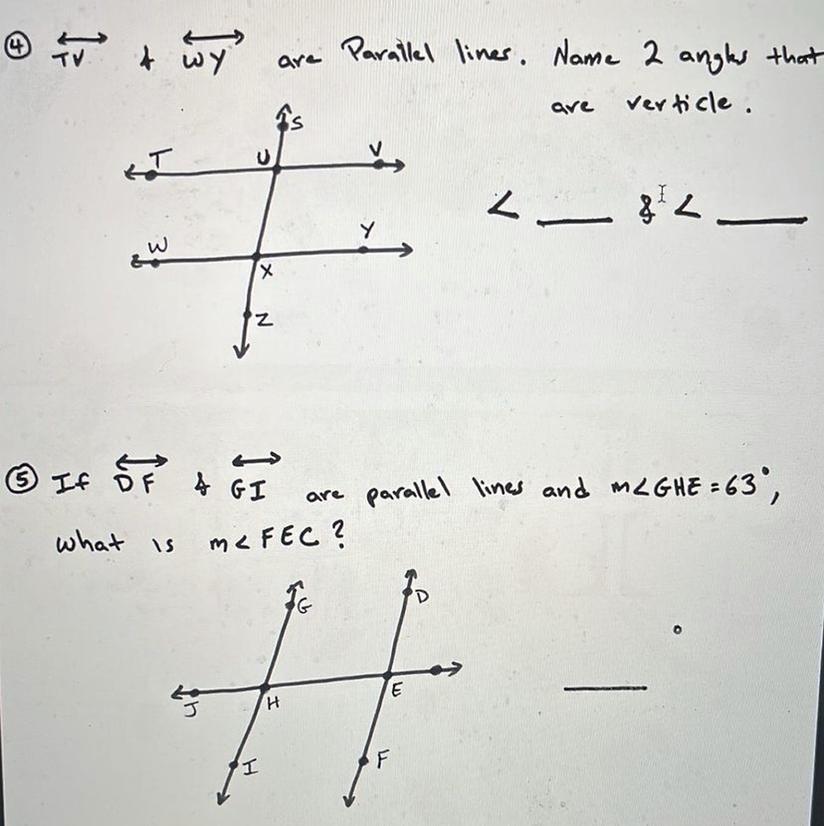 ④ TV & WY are Parallel lines. Name 2 angles that
are verticle.
S
T U V
< ___ & < ___
W Y
X
Z
⑤ If DF & GI are parallel lines and m<GHE = 63°,
what is m<FEC?
G D
___ °
J H E
I F